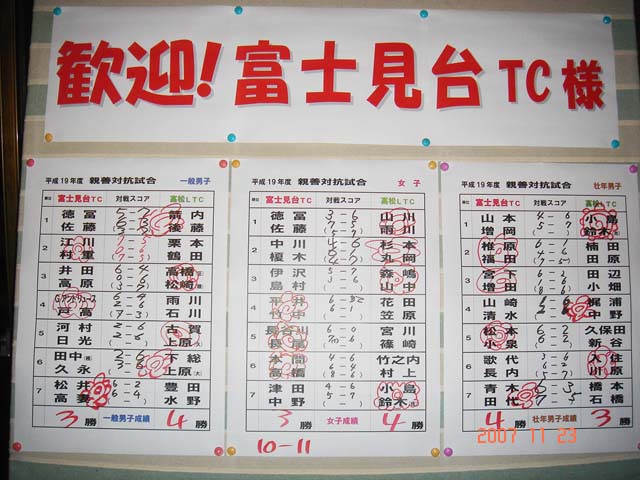 歓迎!富士見台TC様
平成19年度 親善対抗試合 一般男子
順位 富士見台TC 対戦スコア 高松LTC
1 徳冨 箭内
佐藤 後藤
2 江川 栗本
村重 鶴田
3 井田 6-4 高橋
高原 松崎
4 G.アンドリュース 雨川
戸高 石川
5 河村 古賀
日光 上原
6 田中 下総
久永 上原(大)
7 松井 6-2 豊田
高妻 6-4 水野
3勝 一般男子成績 4勝
平成19年度 親善対抗試合 女子
順位 富士見台TC 対戦スコア 高松LTC
1 徳冨 3-6 山川
佐藤 5-7 雨川
2 中川 杉本
榎木 丸岡
3 伊沢 5-7 森嶋
島村 3-6 山中
4 平井 花田
竹中 6-1 笠原
5 長谷川 6-3 宮川
長尾 篠崎
6 本間 4-6 竹之内
高橋 村上
7 津田 4-6 小島
中野 5-7 鈴木
3勝 女子成績 4勝
10-11
平成19年度 親善対抗試合 壮年男子
順位 富士見台TC 対戦スコア 高松LTC
1 山本 4-6 小島
増岡 5-7 鈴木
2 椎原 6-1 楠田
福田 7-5 原田
3 宮下 6-2 田辺
増田 小畑
4 山崎 梶浦
清水 中野
5 松本 6-2 久保田
小泉 新谷
6 歌代 3-6 入住
長内 川原
7 青本 橋本
田代 石橋
4勝 壮年男子成績 3勝
2007 11 23